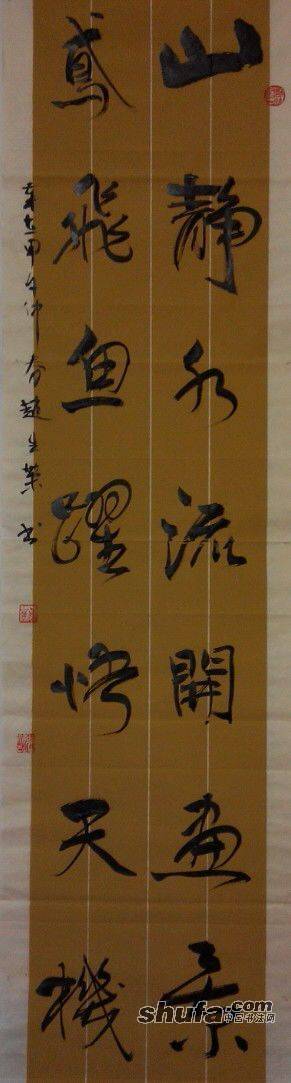 山静水流開畫景
鳶飛鱼躍悟天機
甲午仲春趙生书
shufa.com
中国书法网